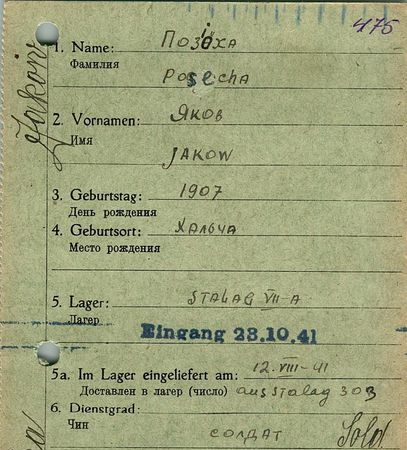 475
1. Name: Позёха
Фамилия
Posecha
2. Vornamen: Яков
Имя
JAKOW
3. Geburtstag: 1907
День рождения
4. Geburtsort: Хальча
Место рождения
5. Lager: STALAG VII-A
Лагер
Eingang 23.10.41
5a. Im Lager eingeliefert am: 12.VIII-41
Доставлен в лагер (число) aus Stalag 303
6. Dienstgrad:
Чин солдат Sold.
Jakow